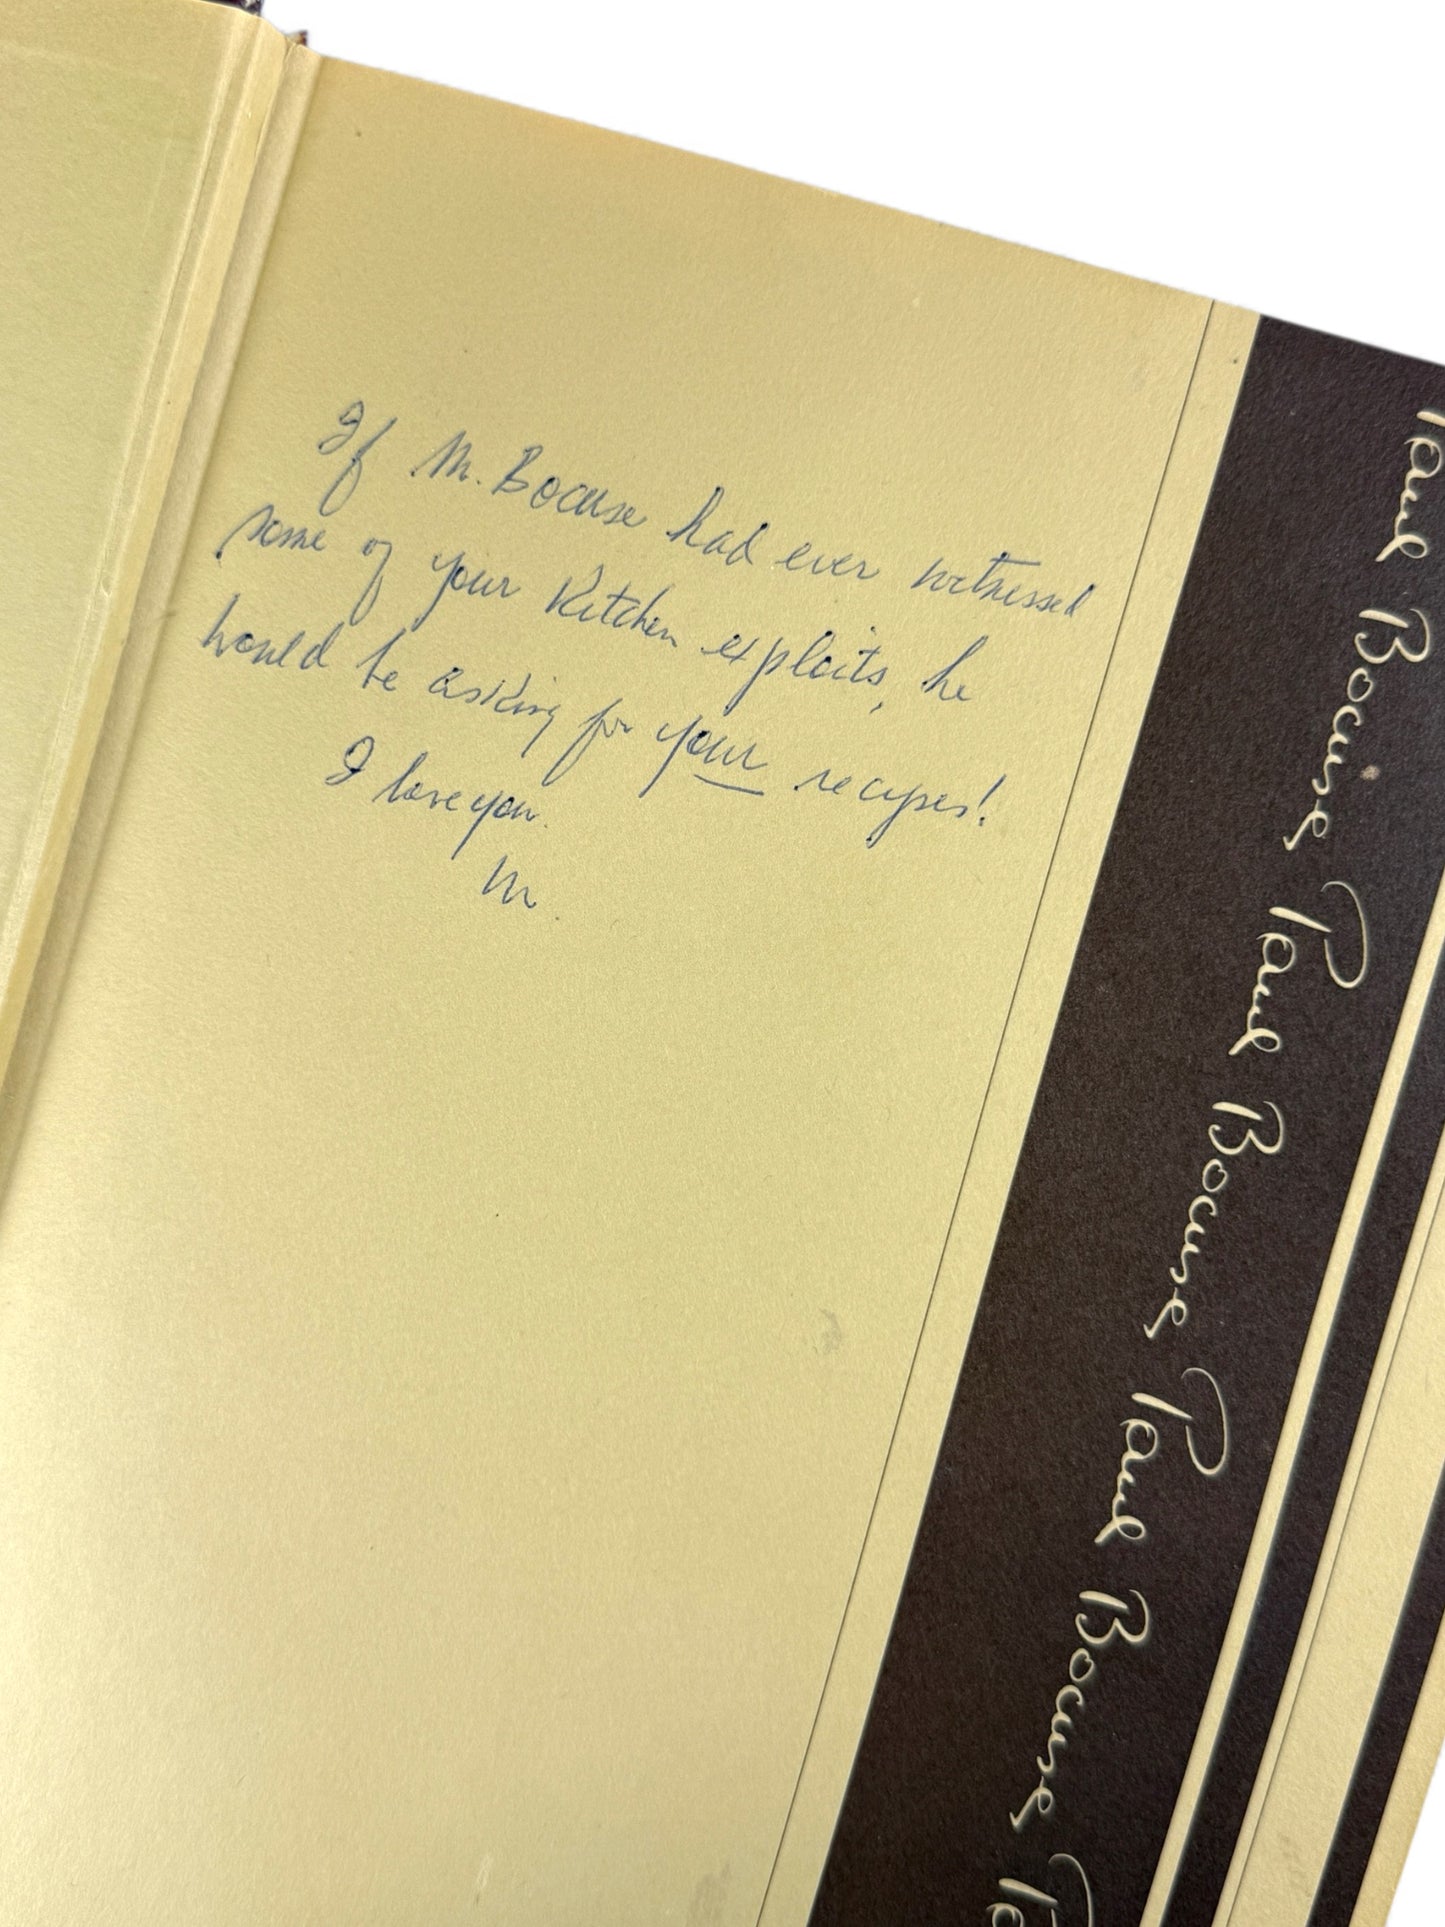 If M. Bocuse had ever witnessed
some of your Kitchen exploits, he
would be asking for your recipes!
I love you.
M.
Paul Bocuse Paul Bocuse Paul Bocuse